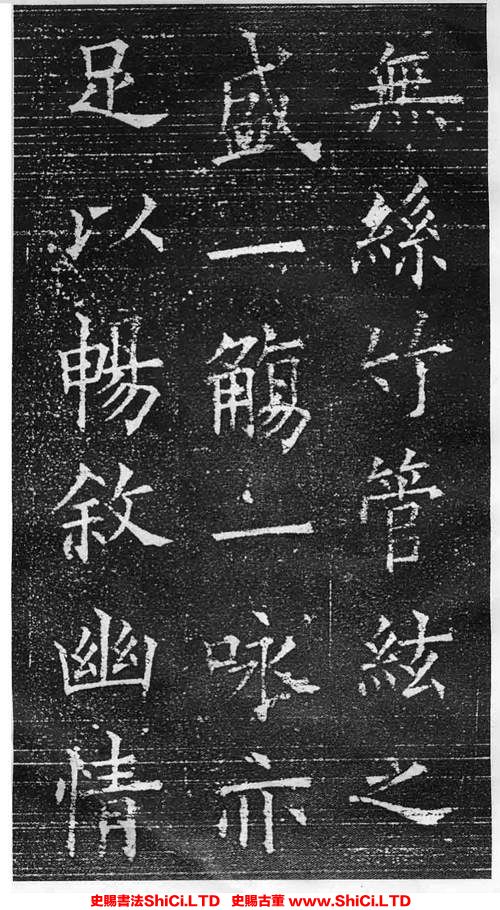 無絲竹管絃之
盛一觴一咏亦
足以暢敘幽情
史賜書法ShiCi.LTD 史賜古董 www.ShiCi.LTD